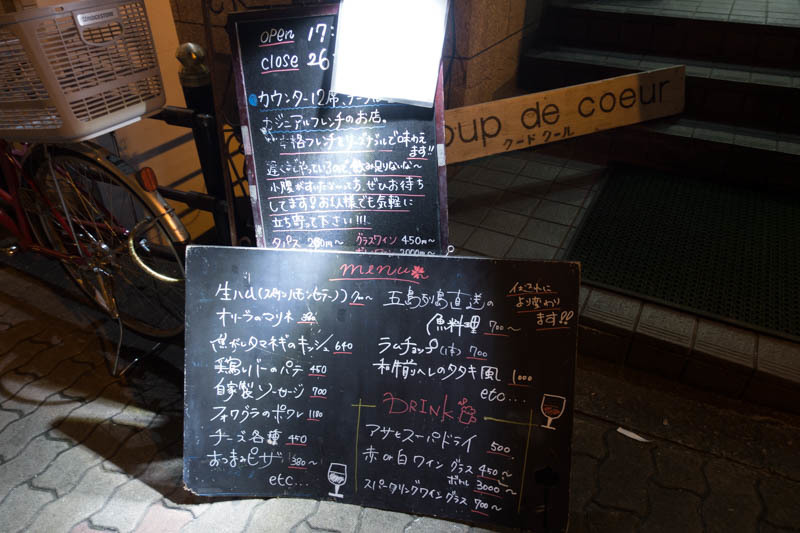 BRIDGESTONE
open 17:
close 26
カウンター12席、
カジュアルフレンチのお店。
本格フレンチをリーズナブルに味わえ
ます!!
遅くまでやっているので飲み足りないな〜
小腹がすいたな〜ってお、ぜひお待ち
してます!お1人様でも気軽に
立ち寄って下さい!!!
タパス 200円〜 グラスワイン 450円〜
2000円〜
oup de coeur
クード クール
menu
生ハム(スペインハモンセラーノ) 700〜
オリーブのマリネ 380
焦がしタマネギのキッシュ 640
鶏レバーのパテ 450
自家製ソーセージ 700
フォワグラのポワレ 1180
チーズ各種 450
おつまみピザ 380〜
etc...
五島列島直送の
魚料理 700〜
ラムチョップ(1本) 700
和牛前ヘレのタタキ風 1000
etc...
仕入れに
より変わり
ます!!
DRINK
アサヒスーパードライ 500
赤or白ワイン グラス 450〜
ボトル 3000〜
スパークリングワイン グラス
700〜